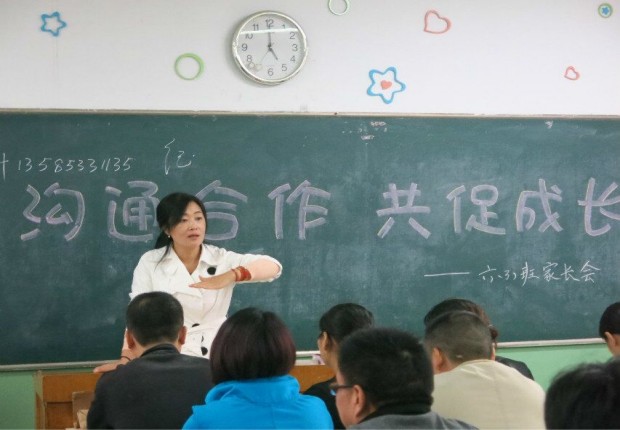 13585331135
沟通合作 共促成长
——六.3)班家长会